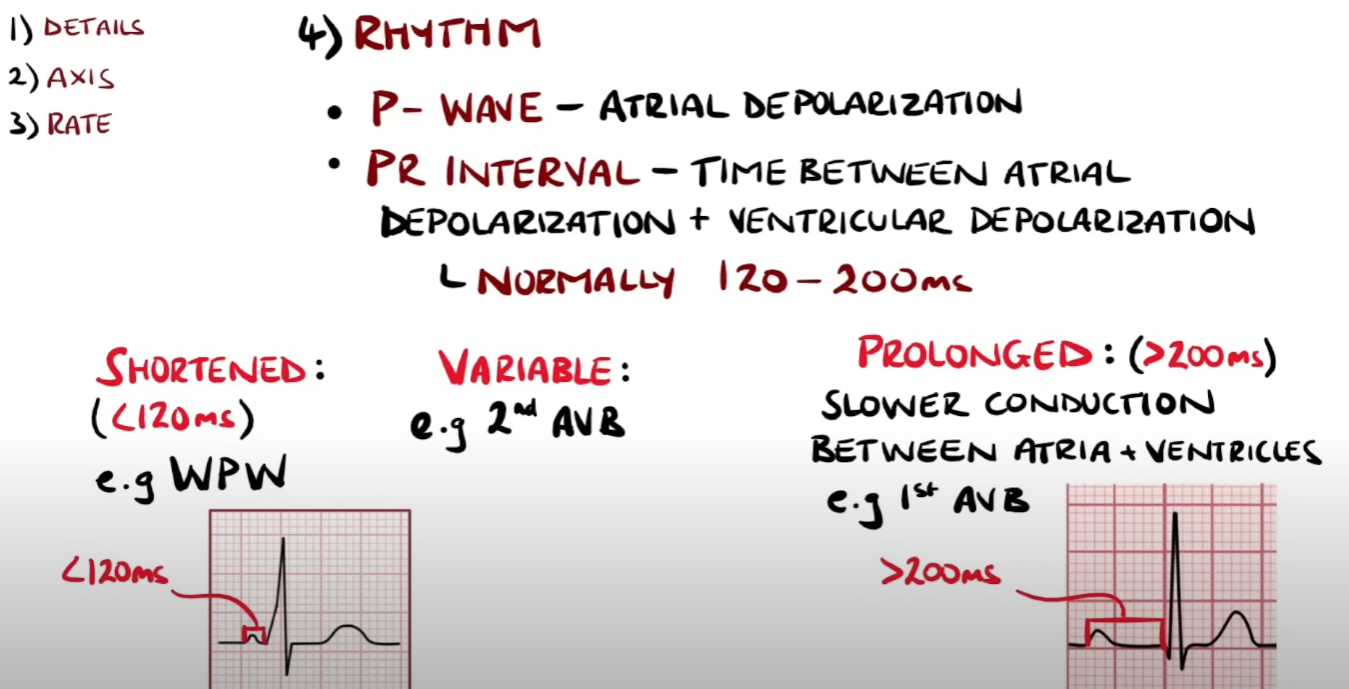 1) DETAILS
2) AXIS
3) RATE
4) RHYTHM
• P- WAVE – ATRIAL DEPOLARIZATION
• PR INTERVAL – TIME BETWEEN ATRIAL
DEPOLARIZATION + VENTRICULAR DEPOLARIZATION
└ NORMALLY 120 – 200ms
SHORTENED:
(<120ms)
e.g WPW
<120ms
VARIABLE:
e.g 2nd AVB
PROLONGED: (>200ms)
SLOWER CONDUCTION
BETWEEN ATRIA + VENTRICLES
e.g 1st AVB
>200ms